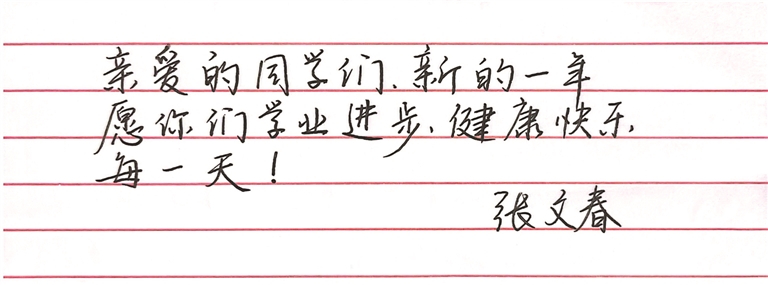 亲爱的同学们、新的一年
愿你们学业进步、健康快乐、
每一天！
张文春